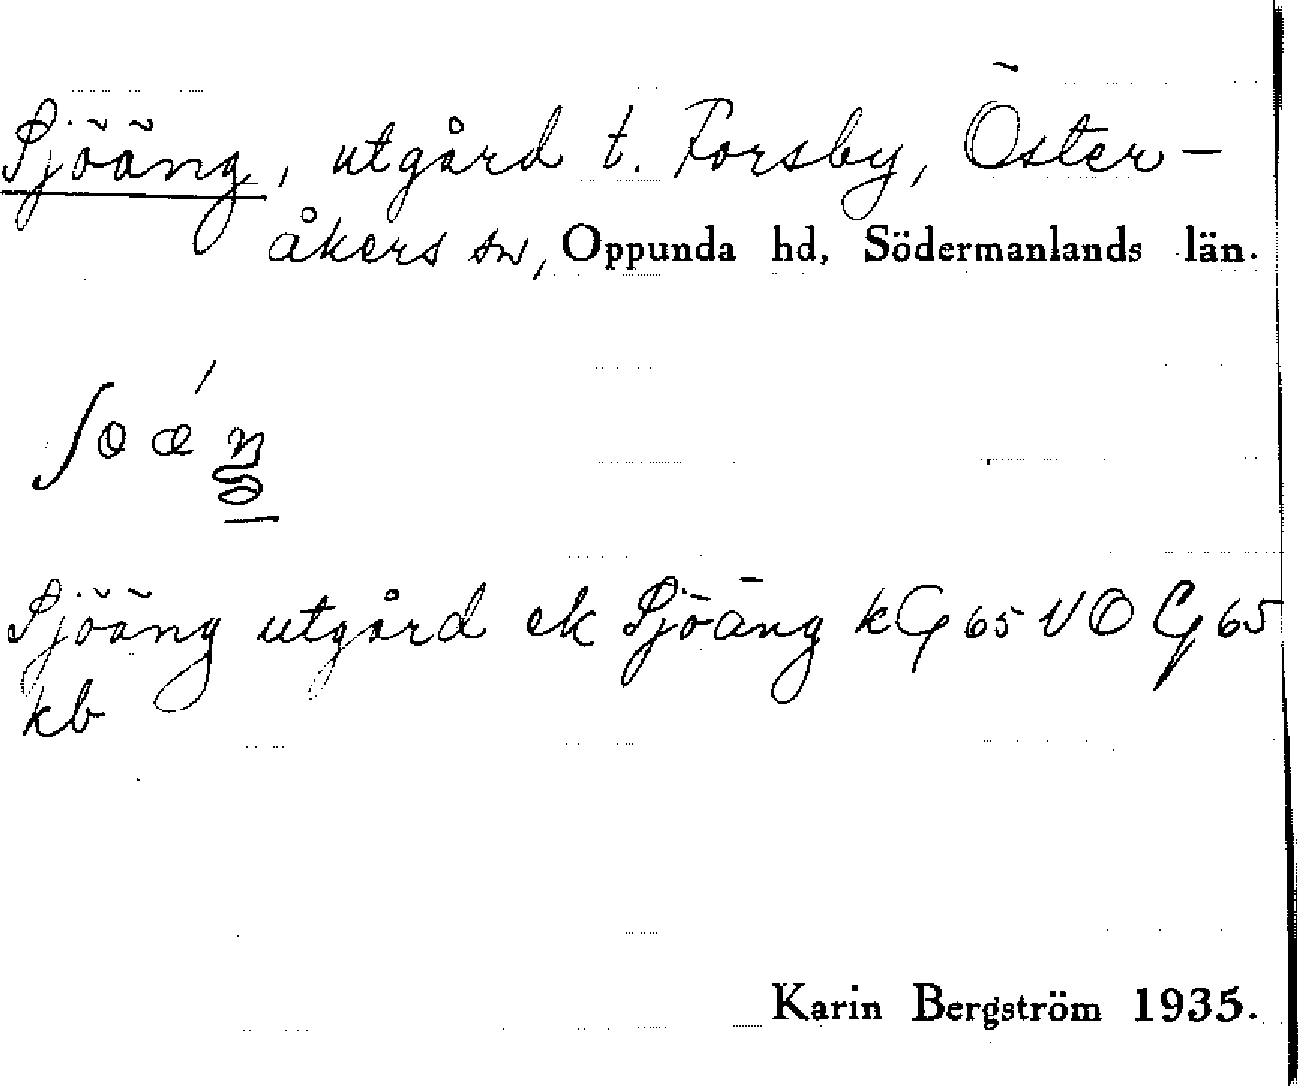 Sjöäng, utgård t. Forsby, Öster-
åkers sn, Oppunda hd, Södermanlands län.
Sjöäng utgård ek Sjöäng kG65VO G65
kb
Karin Bergström 1935.